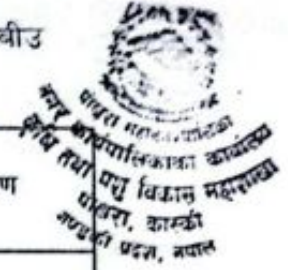 वीउ
पोखरा महानगरपालिका
नगर कार्यपालिकाको कार्यालय
कृषि तथा पशु विकास महाशाखा
ण
पोखरा, कास्की
गण्डकी प्रदेश, नेपाल